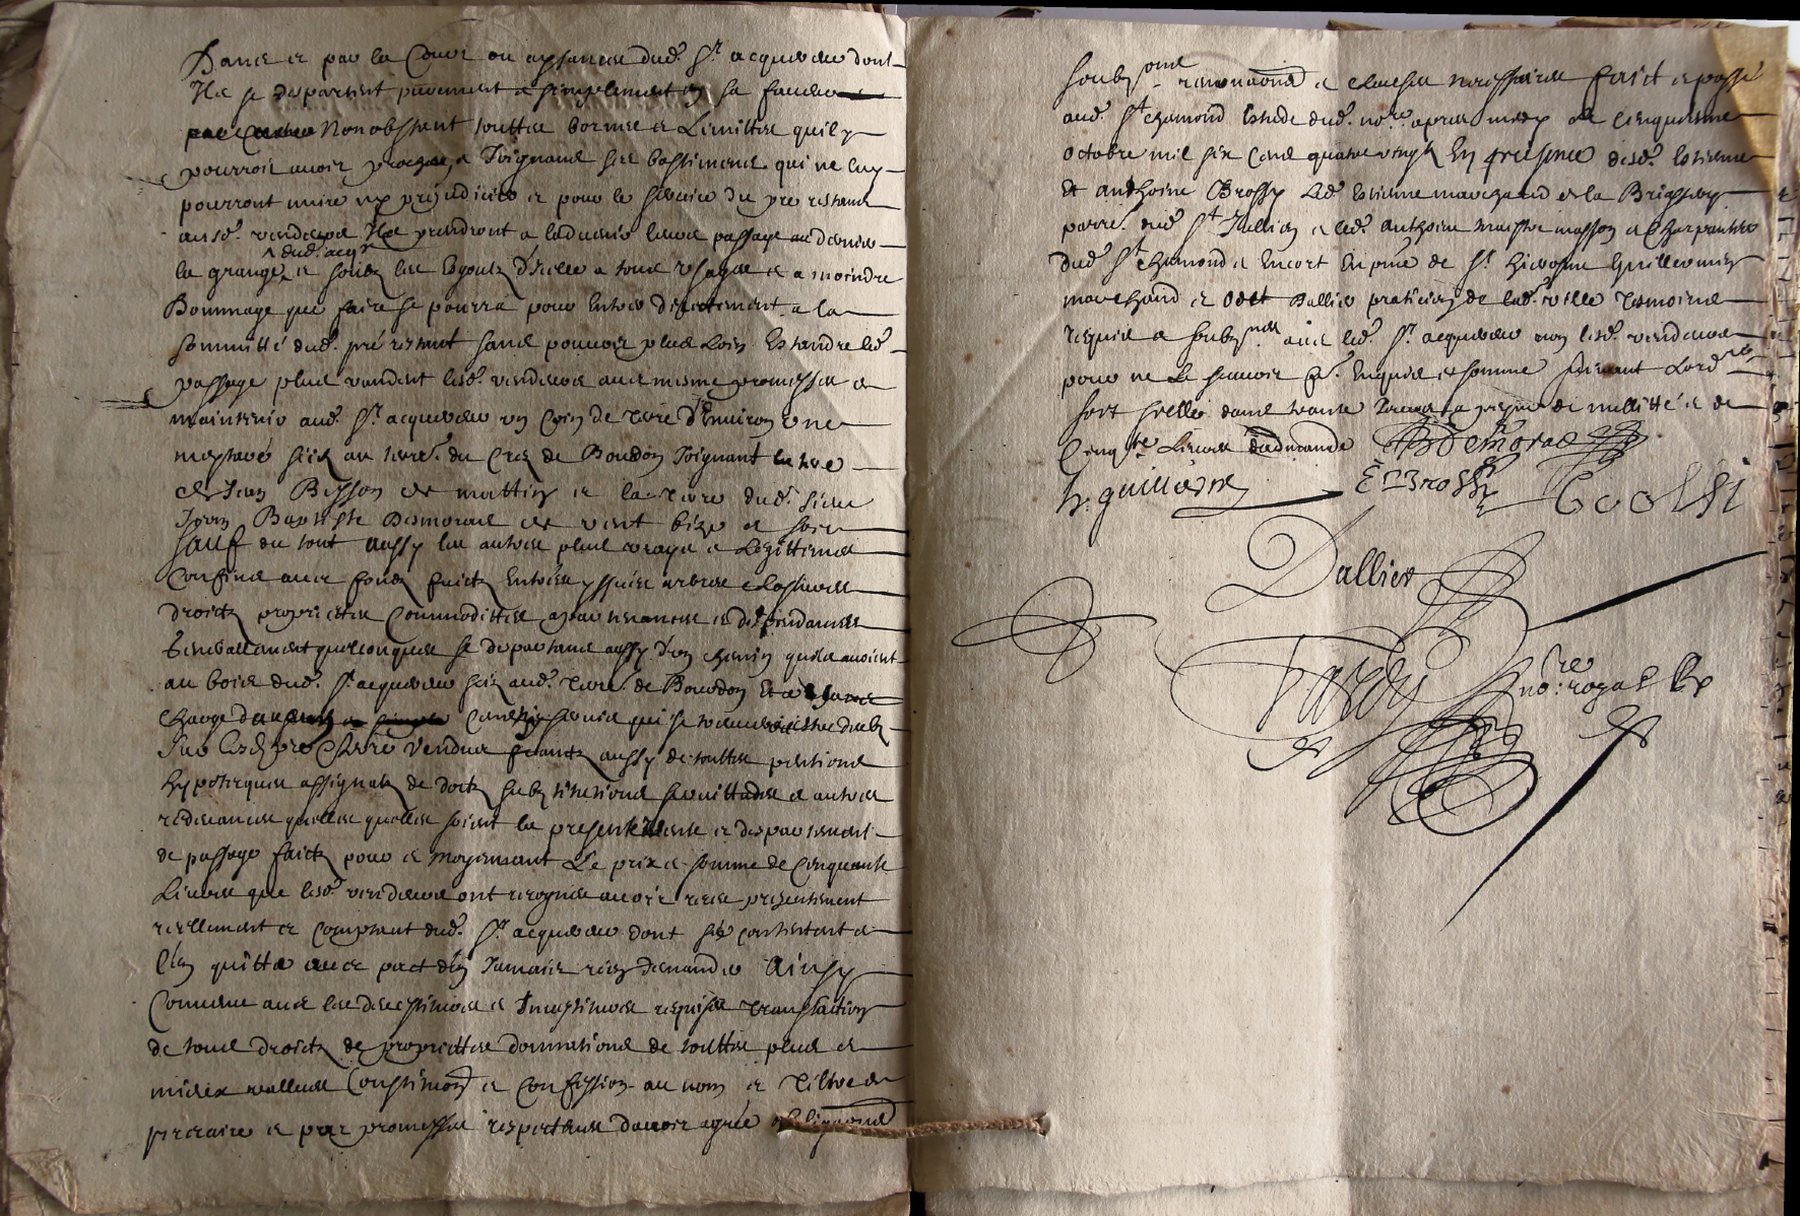 et par la Cour ou aysances dud. Sr. acquereur dont
Ilz se departent purement & simplement en sa faveur
Nonobstant touttes bornes et Limittes quil y
pourroit avoir joignant ses bastiments qui ne luy
pourront nuire ny prejudicier et pour le service du pre restant
ausd. vendeurs Ilz prendront a ladvenir leurs passage au dernier
^ dud. acqr
la grange et soubz les Egoutz d'icelle a tous usages et a moindre
Dommage que faire se pourra pour Entrer directement a la
sommitté dud. pré restant sans pouvoir plus Loin Estendre led.
passage plus vendent lesd. vendeurs avec mesme promesses de
maintenir aud. Sr. acquereur un Coin de terre d'Environ une
sçiz au terre. du Crez de Bourdon Joignant la terre
de Jean Bisson de mattin et la terre dud. sieur
Jean Baptiste Desmoraux de vent bize et soir
sauf du tout aussy les autres plus vrayes et Legittimes
Confins avec fondz fruictz Entrées yssuës arbres
droictz proprietes Commodittes apartenances et dependances
Generallement quelconques se departans aussy d'un chemin quilz avoient
au bois dud. Sr. acquereur sciz aud. terre. de Bourdon
charge d
Sur lesd. pre & terre vendues francz aussy de touttes pentions
hypotecques assignatz de dotz substitutions servittudes et autres
redevances quelles quelles soient la presente vente et departement
de passage faictz pour et moyennant Le prix et somme de Cinquante
Livres que lesd. vendeurs ont recogneu avoir receu presentement
reellement et Comptant dud. Sr. acquereur dont se contentent et
l'en quitte avec pact d'en Jamais rien demander Ainsy
Convenu avec les devestitures et Investitures requises translation
de tous droictz de proprietté donnations de touttes plus et
mieux vallues Constitution et Confession au nom et tiltre de
precaire et par promesses respectives davoir agreé obligations
soubzons renonciaons et clauses necessaires faict et passé
aud. St. Chamond Estude dud. nore. apres midy le cinquiesme
octobre mil six cens quatre vingtz En presence desd. Estienne
Et Anthoine Brossy led. Estienne marchand de la
parre. dud. St. Jullien et led. Anthoine maistre masson et Charpentier
dud. St. Chamond et Encor En pnce de Sr. hierosme Guillermin
marchand et Odet Dallier praticien de lad. ville tesmoins
requis et soubznes avec led. Sr. acquereur non lesd. vendeurs
pour ne le scavoir Enquis et sommé suivant Lordce
sort scellé dans trante Jours a peyne de nullitté et de
Cinqte Livres dadmande BDemorae
h. guillermi E Brossy
Dallier
Tardy nore. royal Rx